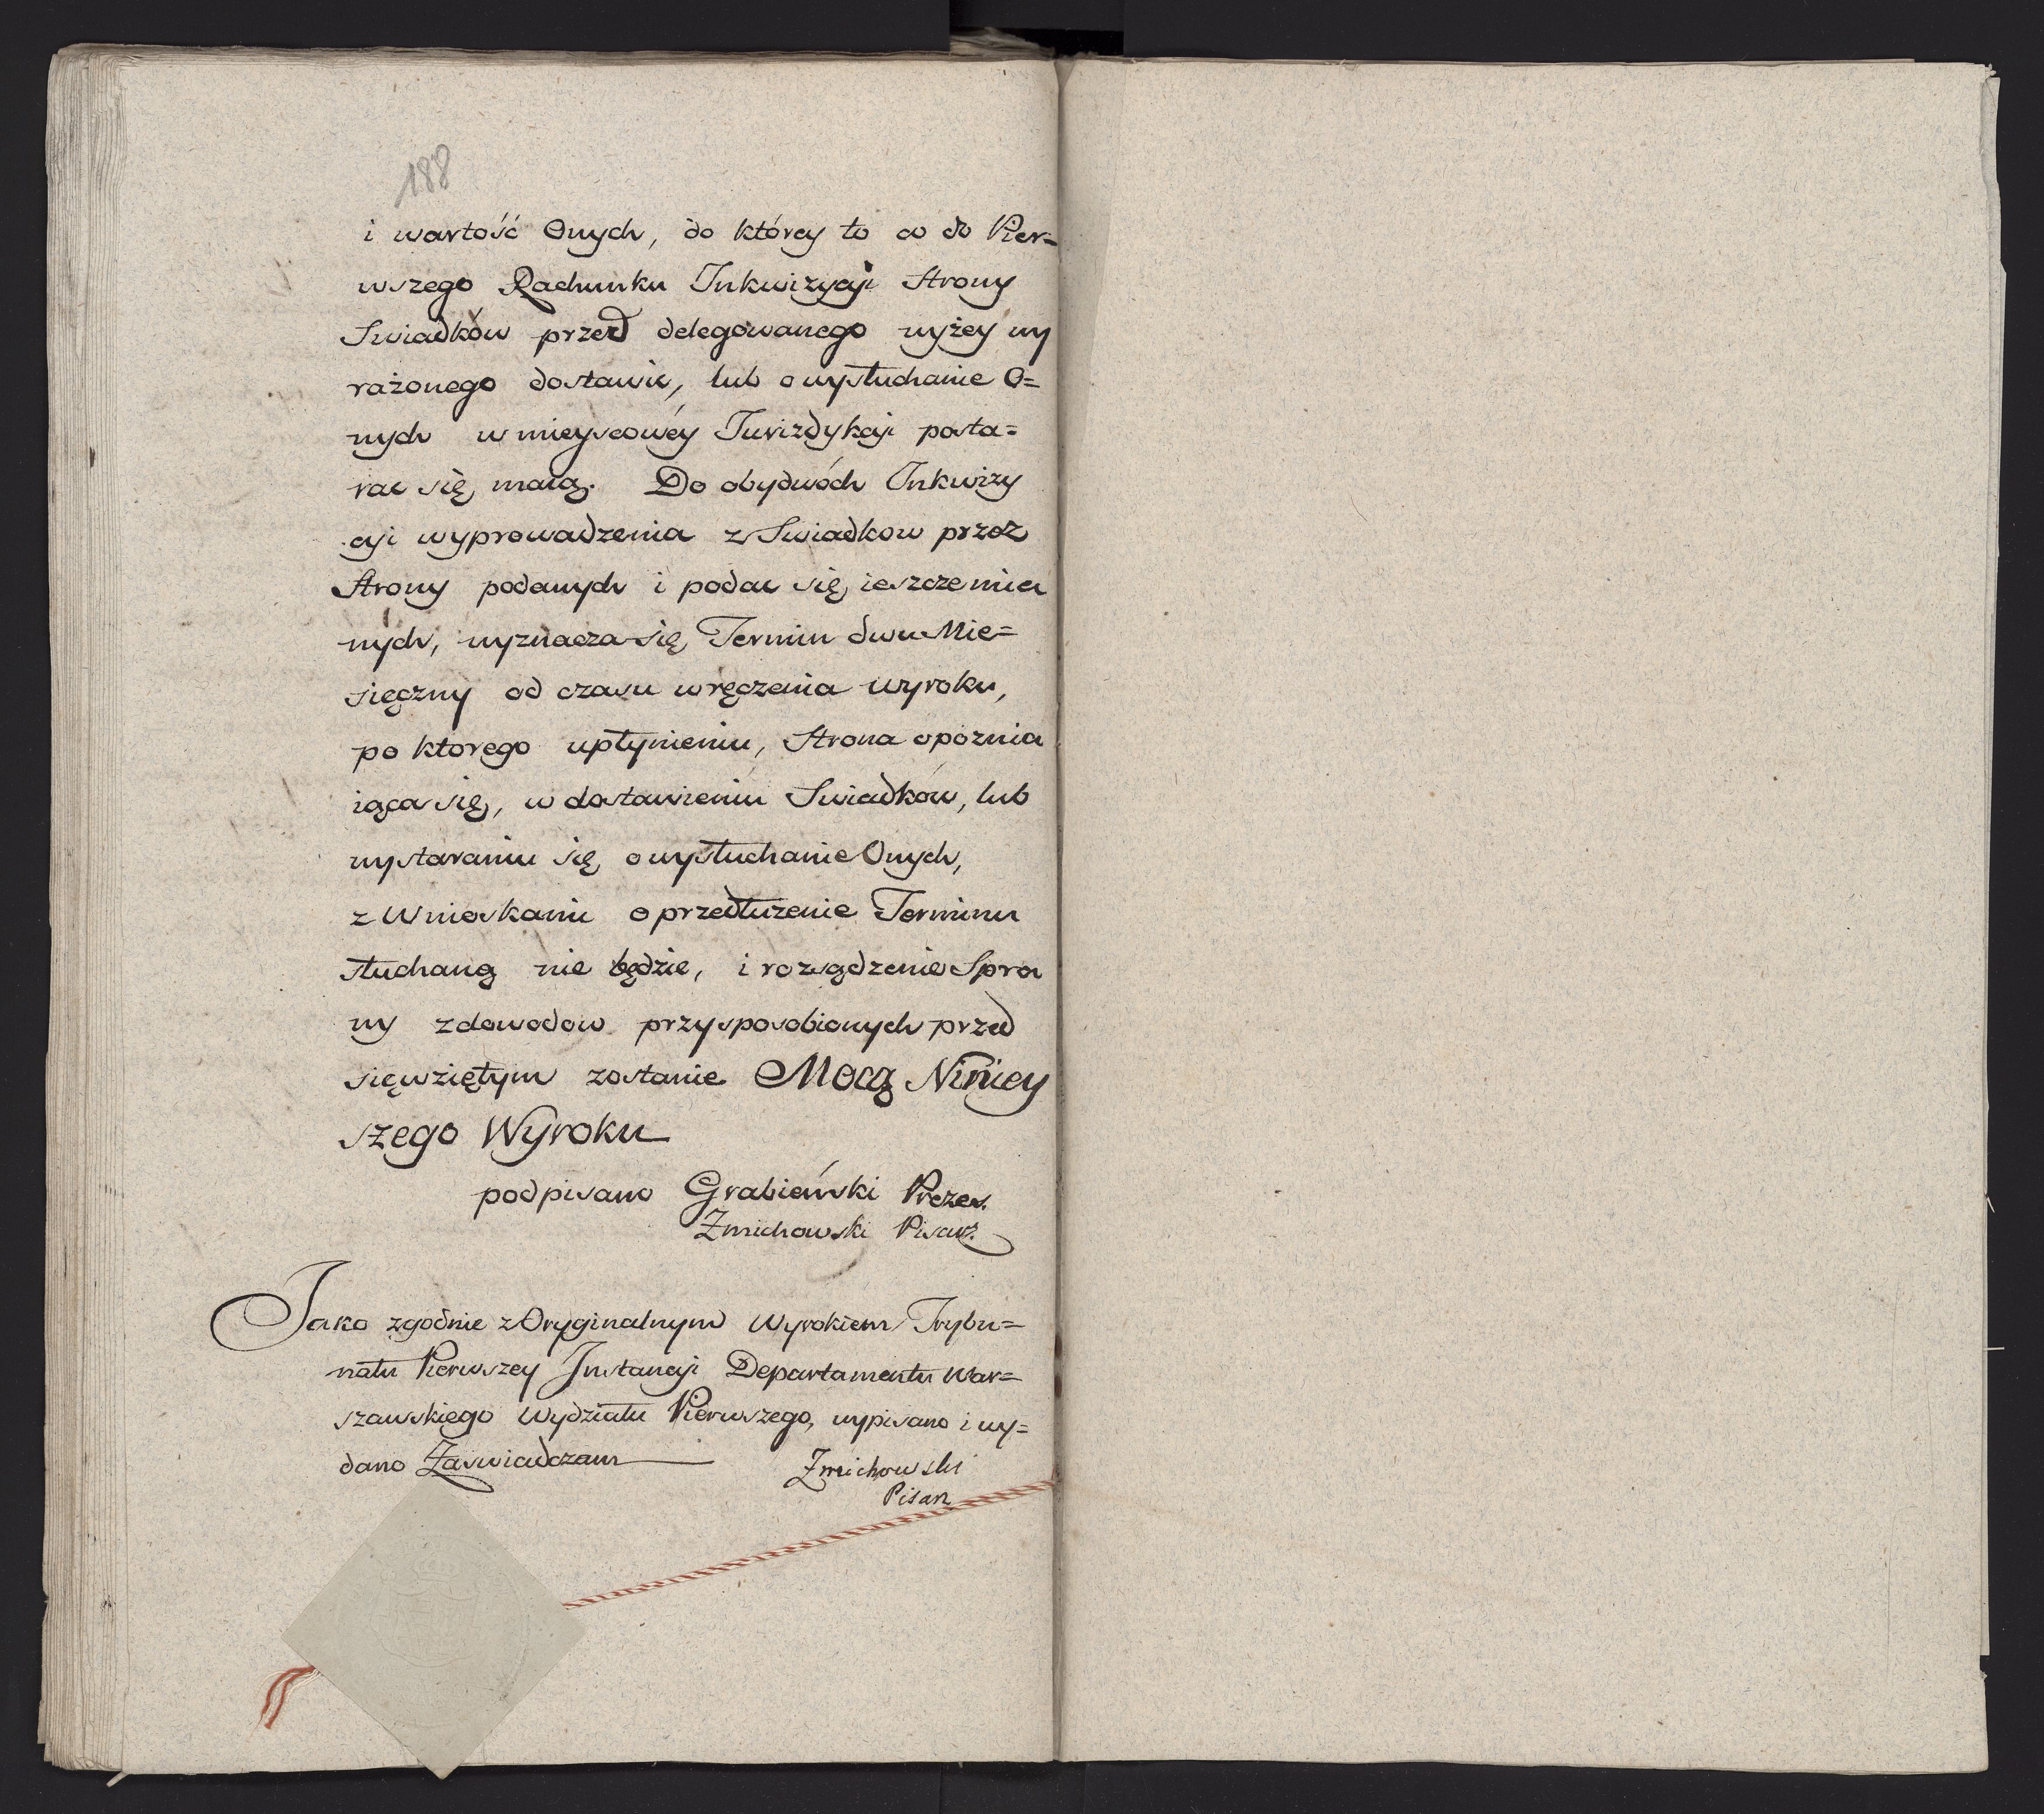 188
i wartość Onych, do którey to co do Pier=
wszego Rachunku Inkwizycji Strony
Swiadków przed delegowanego wyżey wy
rażonego dostawić, lub o wysłuchanie O=
nych w mieyscowéy Jurizdykcji posta=
rać się maią. Do obydwóch Inkwizy
cji wyprowadzenia z Swiadkow przez
Strony podanych i podać się ieszcze mia
nych, wyznacza się Termin dwu Mie=
sięczny od czasu wręczenia wyroku,
po ktorego upłynieniu, Strona opoznia
iąca się, w dostawieniu Swiadków, lub
wystaraniu się o wysłuchanie Onych,
z Wnioskami o przedłużenie Terminu
słuchaną nie będzie, i rozsądzenie Spra
wy z dowodow przysposobionych przed
sięwziętym zostanie Mocą Niniey
szego Wyroku
podpisano Grabieński Prezes.
Zmichowski Pisarz.
Jako zgodnie z Oryginalnym Wyrokiem Trybu=
nału Pierwszey Instancji Departamentu War=
szawskiego Wydziału Pierwszego, wypisano i wy=
dano Zaswiadczam
Zmichowski
Pisarz